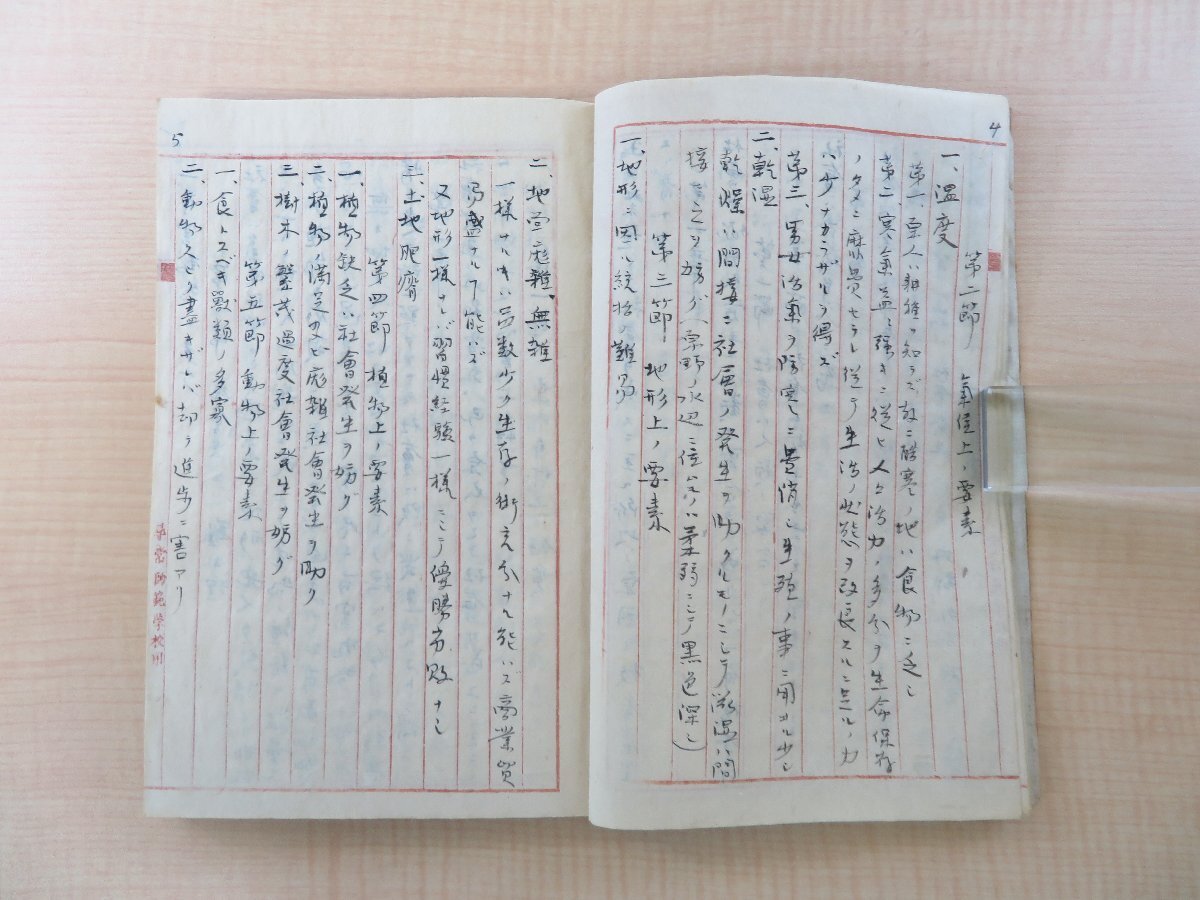 4
第二節 氣候上ノ要素
一、温度
第一、亜人ハ耕種ヲ知ラズ故ニ酷寒ノ地ハ食物ニ乏シ
第二、寒氣益々強キニ從ヒ人身活力ノ多分ヲ生命保存
ノタメニ麻費セラレ從テ生活ノ状態ヲ改良スルニ足ルノ力
ハ少ナカラザルヲ得ズ
第三、男女活氣ヲ防寒ニ費消シ生殖ノ事ニ用ヰル少シ
二、乾湿
乾燥ハ間接ニ社會ノ発生ヲ助クルモノニシテ湿ハ間
接ニ之ヲ妨グ(原野ノ水辺ニ住ハ柔弱ニシテ黒色深シ)
第三節 地形上ノ要素
一、地形ニ因ル統括ノ難易
5
二、地質彪雑、無雑
一様ナルキハ品数少ク生存ノ術充分ナル能ハズ商業貿
易盛ナルヿ能ハズ
又地形一様ナレバ習慣経験一様ニシテ優勝劣敗ナシ
三、土地肥瘠
第四節 植物上ノ要素
一、植物缺乏ハ社會発生ヲ妨グ
二、植物ノ満足及ビ彪雑社會発生ヲ助ク
三、樹木ノ繁茂過度社會発生ヲ妨グ
第五節 動物上ノ要素
一、食トスベキ獣類ノ多寡
二、動物スヒク盡キザレバ却テ進歩ニ害アリ
尋常師範学校用